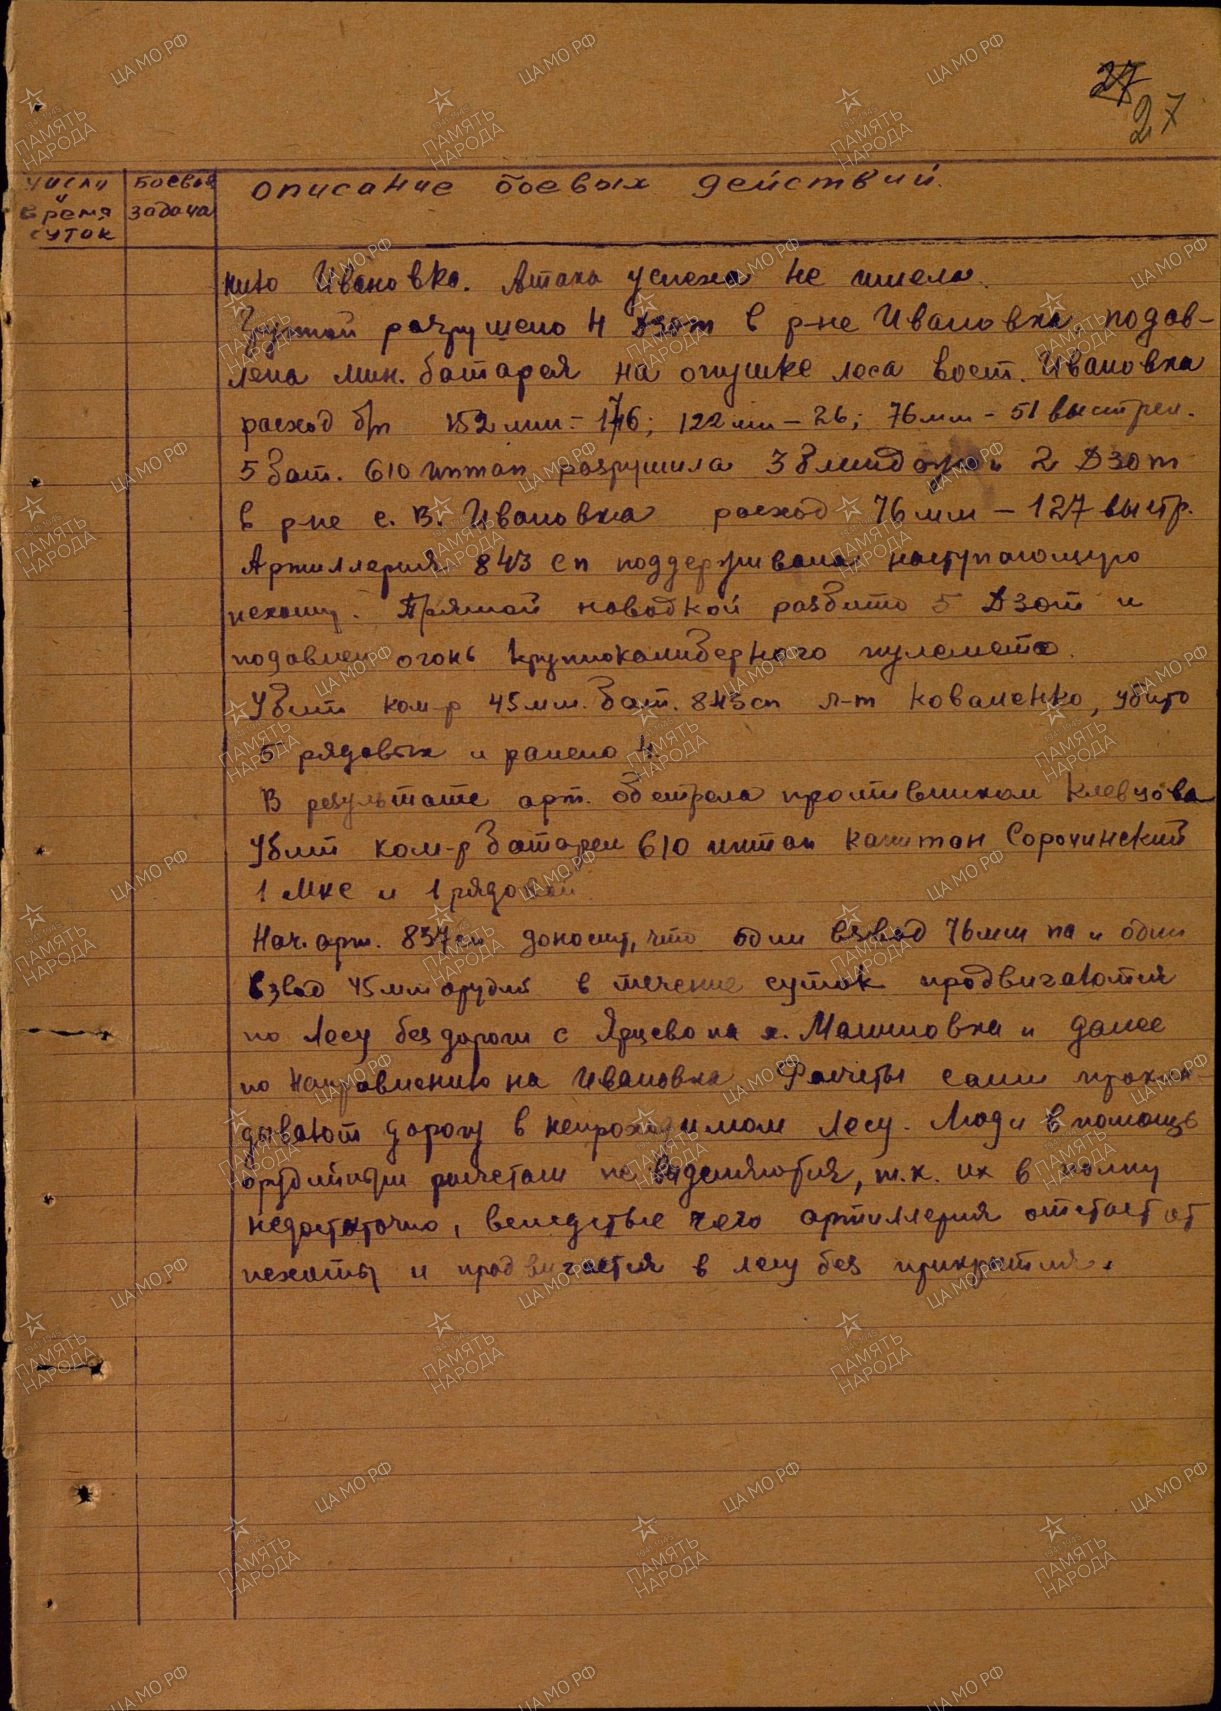 27
27
числа и время суток
боевая задача
описание боевых действий.
нию Ивановка. Атака успеха не имела.
Группой разрушено 4 ДЗОТ в р-не Ивановка, подав-
лена мин. батарея на опушке леса вост. Ивановка
расход б/п 152 мм - 176; 122 мм - 26; 76 мм - 51 выстрел.
5 бат. 610 иптап разрушила 3 блиндажа и 2 ДЗОТ
в р-не с. В. Ивановка расход 76 мм - 127 выстр.
Артиллерия 843 сп поддерживала наступающую
пехоту. Прямой наводкой разбито 5 ДЗОТ и
подавлен огонь крупнокалиберного пулемета.
Убит ком-р 45 мм. бат. 843 сп л-т Коваленко, убито
5 рядовых и ранено 4.
В результате арт. обстрела противником Клевцова
убит ком-р батареи 610 иптап капитан Сорочинский
1 мкс и 1 рядовой
Нач. арт. 837 сп доносит, что один взвод 76 мм па и один
взвод 45 мм орудий в течение суток продвигаются
по лесу без дороги с Ярцево на х. Малиновка и далее
по направлению на Ивановка Расчеты сами прокла-
дывают дорогу в непроходимом лесу. Люди в помощь
орудийным расчетам не выделяются, т.к. их в полку
недостаточно, вследствье чего артиллерия отстает от
пехоты и продвигается в лесу без прикрытия.
ПАМЯТЬ НАРОДА
ЦА МО РФ